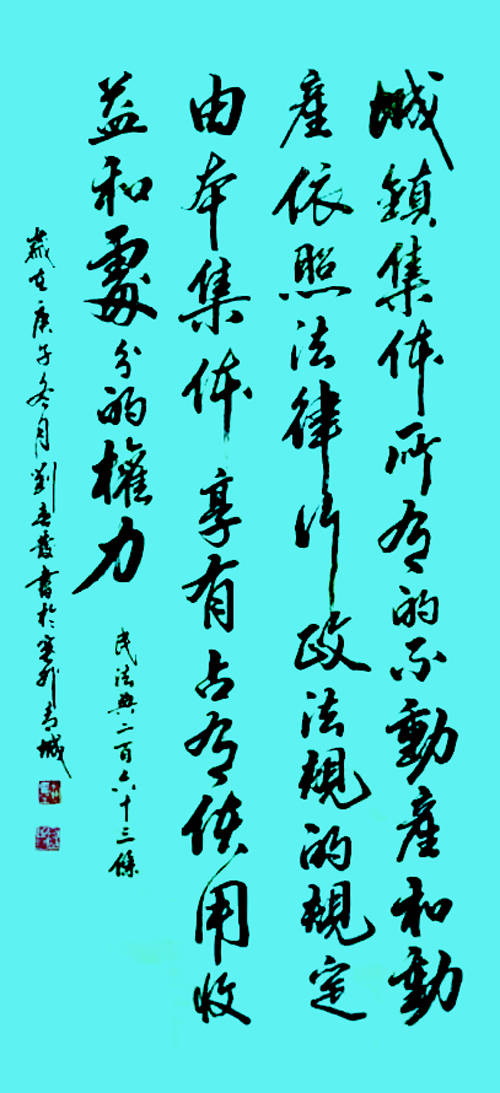 城鎮集体所有的不動產和動
產依照法律行政法規的規定
由本集体享有占有使用收
益和處分的權力
民法典二百六十三條
歲在庚子冬月劉書於塞外青城